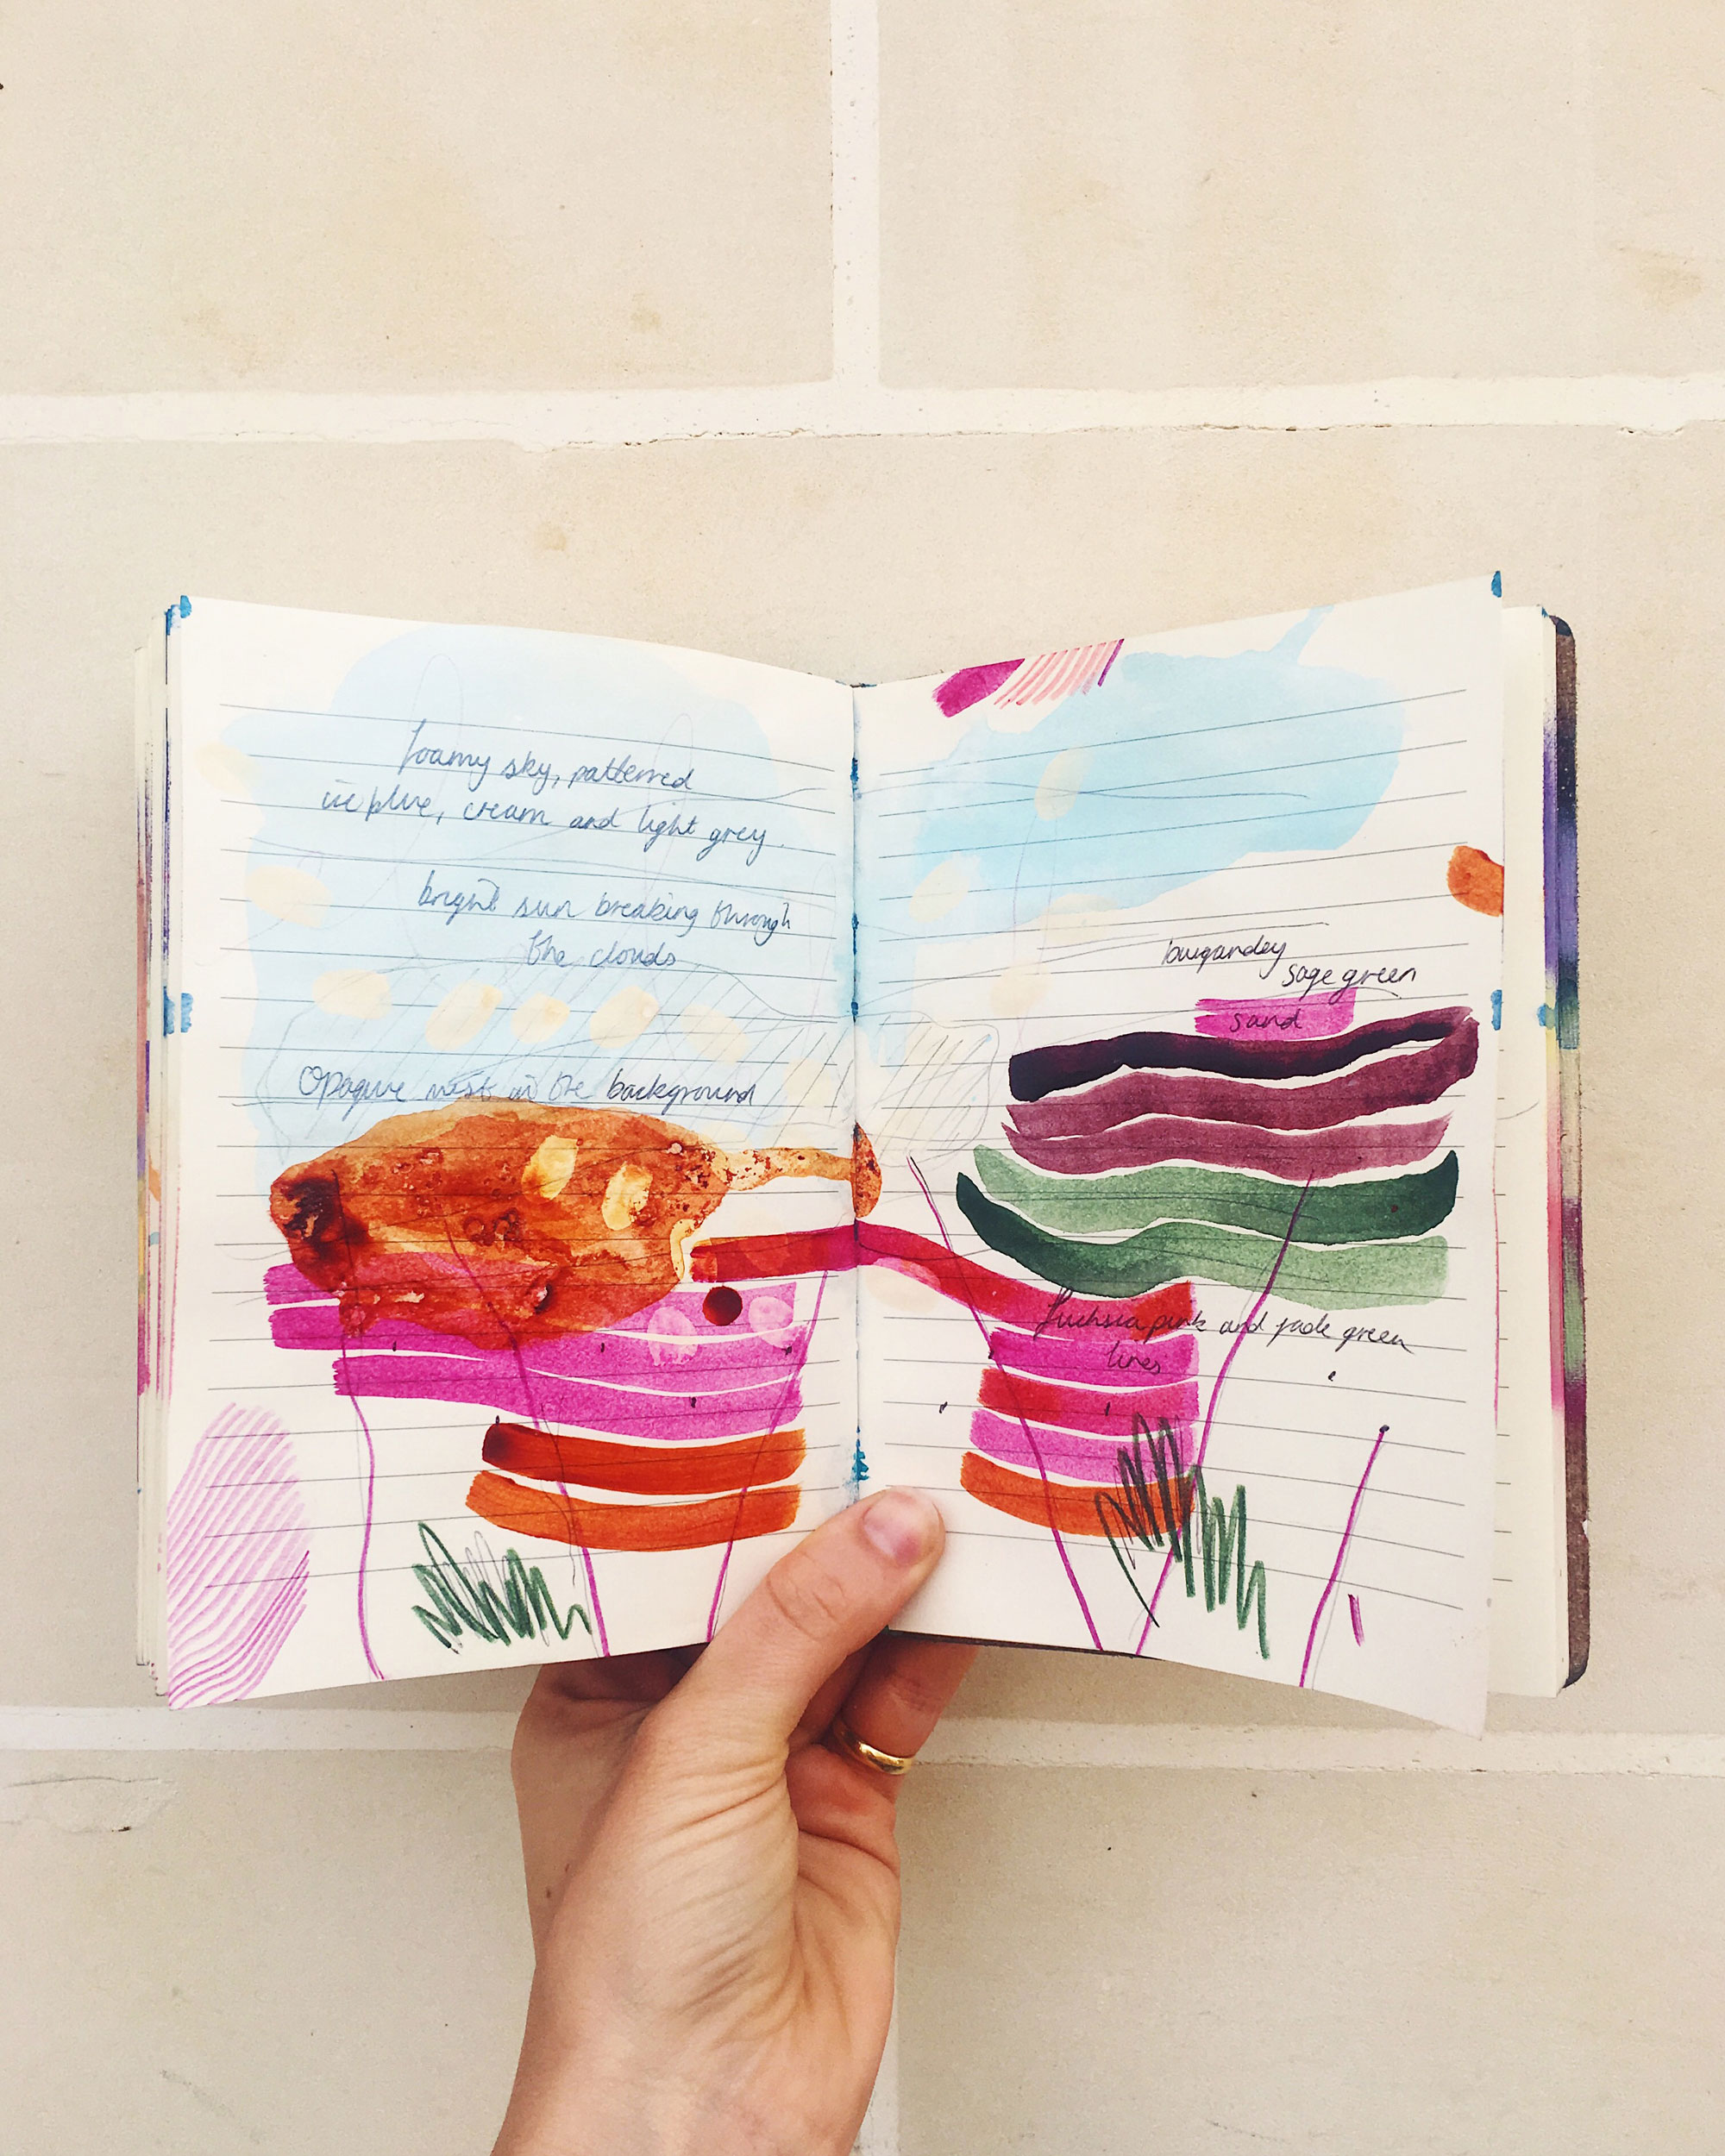 foamy sky, patterned
in blue, cream and light grey.
bright sun breaking through
the clouds
Opaque mist in the background
burgandey
sage green
sand
fuchsia pink and jade green
lines